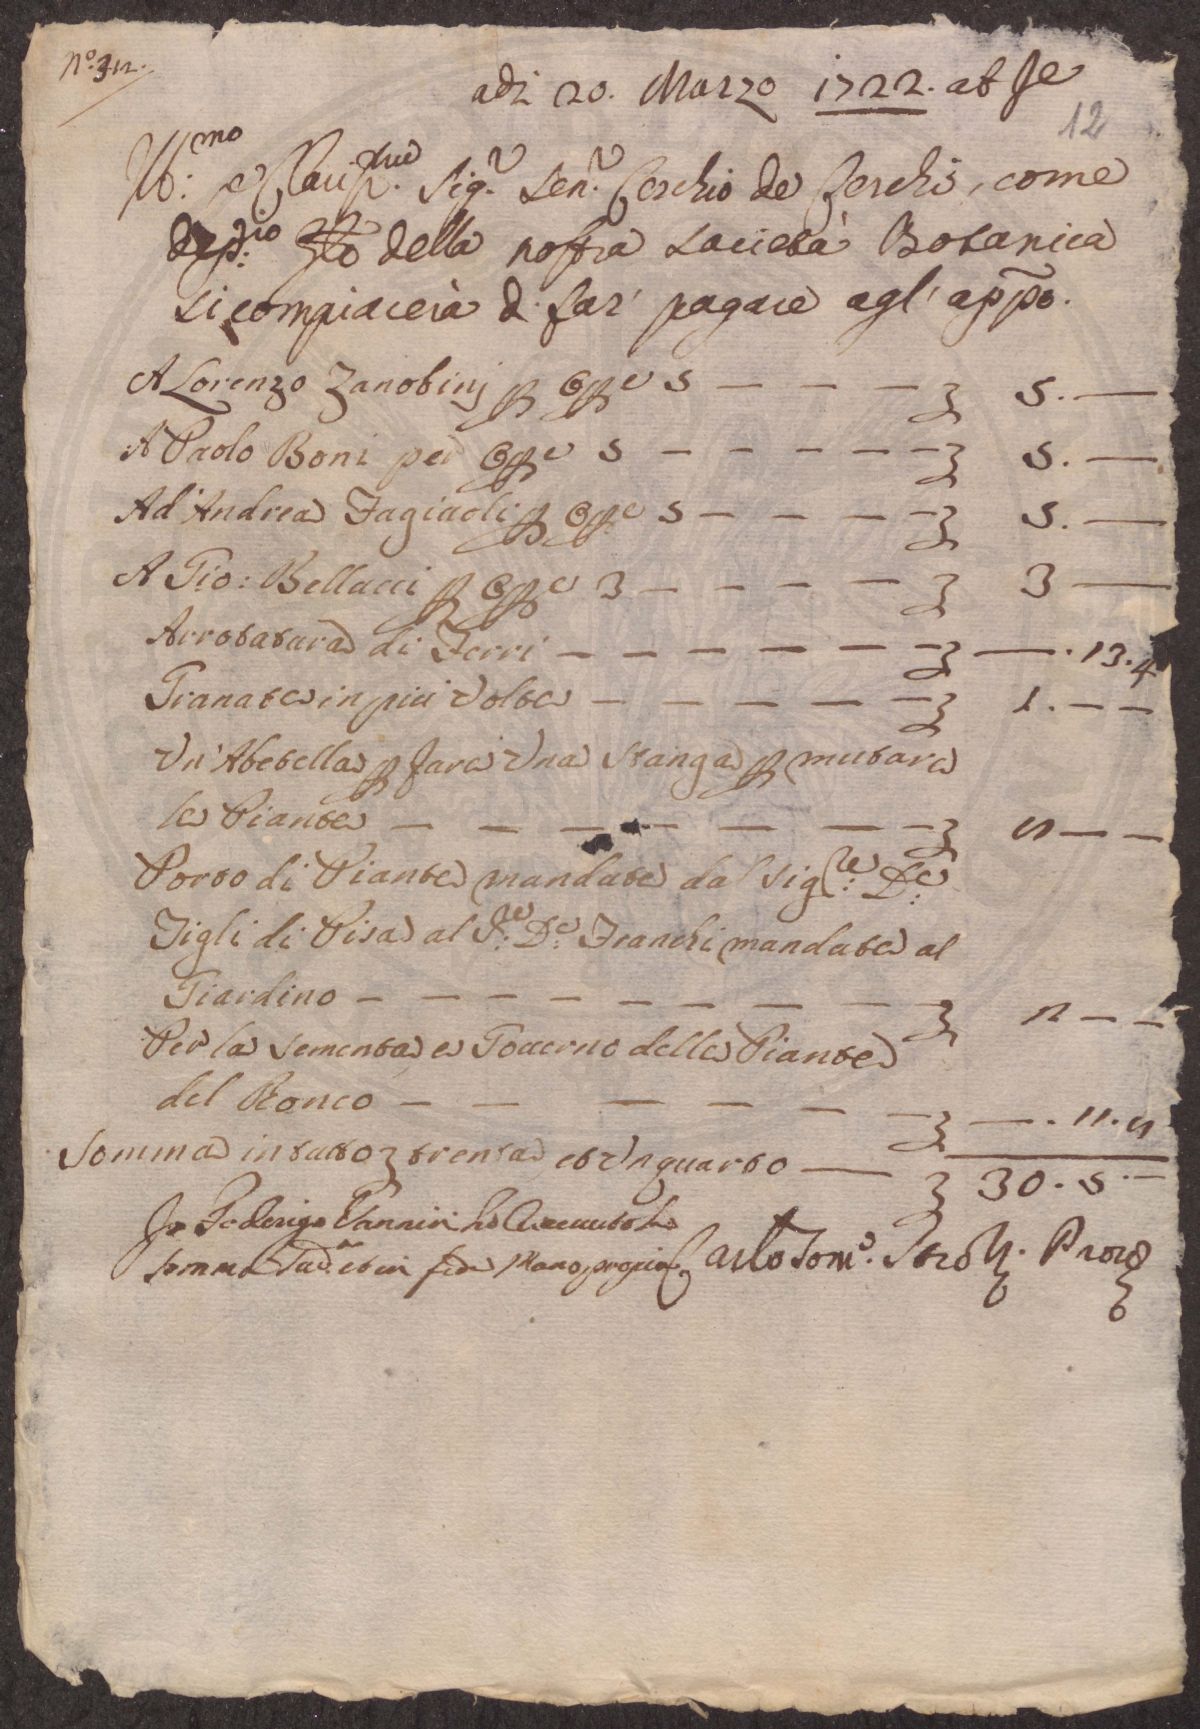 N.º 32.
adi 20. Marzo 1722. ab Je
12
Ill:mo e Clariss.mo Sig.r Sen.r Cerchio de Cerchi, come
dep:rio della nostra Società Botanica
si compiacerà di far' pagare agl' app:o.
A Lorenzo Zanobinj p Opre 5 — — — — 5. —
A Paolo Boni per Opre 5 — — — — — 5. —
Ad' Andrea Fagiuoli p Opre 5 — — — — 5. —
A Gio: Bellacci p Opre 3 — — — — 3 —
Arrotatura di Ferri — — — — — — — . 13. 4
Granate in più volte — — — — — 1. — —
Un' Abetella p fare una stanga p mutare
le Piante — — — — — — — —
Porto di Piante mandate dal Sig:re D:e
Tigli di Pisa al S:re D:e Franchi mandate al
Giardino — — — — — — — —
Per la sementa, e Governo delle Piante
del Ronco — — — — — — — . 11.
Somma in tutto trenta, et un quarto — 30. 5. —
Io Federigo Vannini ho ricevuto la
somma sud.a et in fede Mano propria
Carlo Tom:o Strozzi. Prov:e